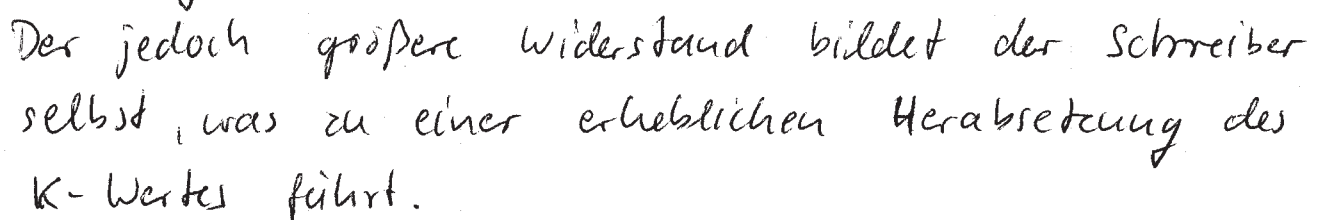 Der jedoch größere Widerstand bildet der Schreiber
selbst, was zu einer erheblichen Herabsetzung des
K-Wertes führt.